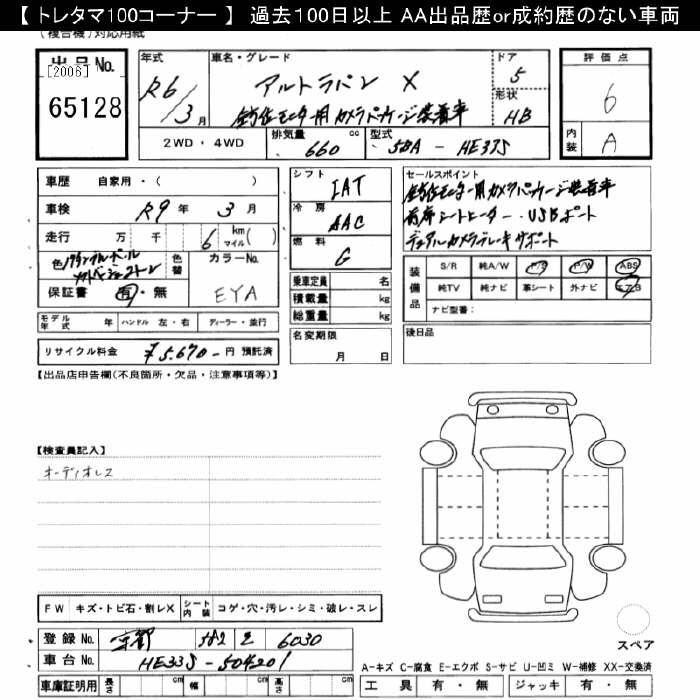 【 トレタマ100コーナー 】 過去100日以上 AA出品歴or成約歴のない車両
(複合機)対応用紙
出品No. [2006] 65128
年式 R6/3月
車名・グレード アルトラパン X
全方位モニター用カメラパッケージ装着車
ドア 5
形状 HB
評価点 6
内装 A
2WD・4WD
排気量 660 cc
型式 5BA - HE33S
車歴 自家用・( )
車検 R9年 3月
走行 万 千 6 km マイル( )
色 色替 カラーNo. EYA
保証書 有・無
シフト IAT
冷房 AAC
燃料 G
乗車定員 名
積載量 kg
総重量 kg
セールスポイント
全方位モニター用カメラパッケージ装着車
前席シートヒーター・USBポート
デュアルカメラブレーキサポート
装備品 S/R 純A/W P/S P/W ABS
純TV 純ナビ 革シート 外ナビ エアB
ナビ型番:
モデル年式 年 ハンドル 左・右 ディーラー・並行
名変期限 月 日
後日品
リサイクル料金 ¥5,670-円 預託済
【出品店申告欄(不良個所・欠品・注意事項等)】
【検査員記入】
オーディオレス
FW キズ・トビ石・割レX シート内装 コゲ・穴・汚レ・シミ・破レ・スレ
登録No. 582 6030
車台No. HE33S-504201
車庫証明用 長さ cm 幅 cm 高さ cm
スペア
A-キズ C-腐食 E-エクボ S-サビ U-凹ミ W-補修 XX-交換済
工具 有・無 ジャッキ 有・無